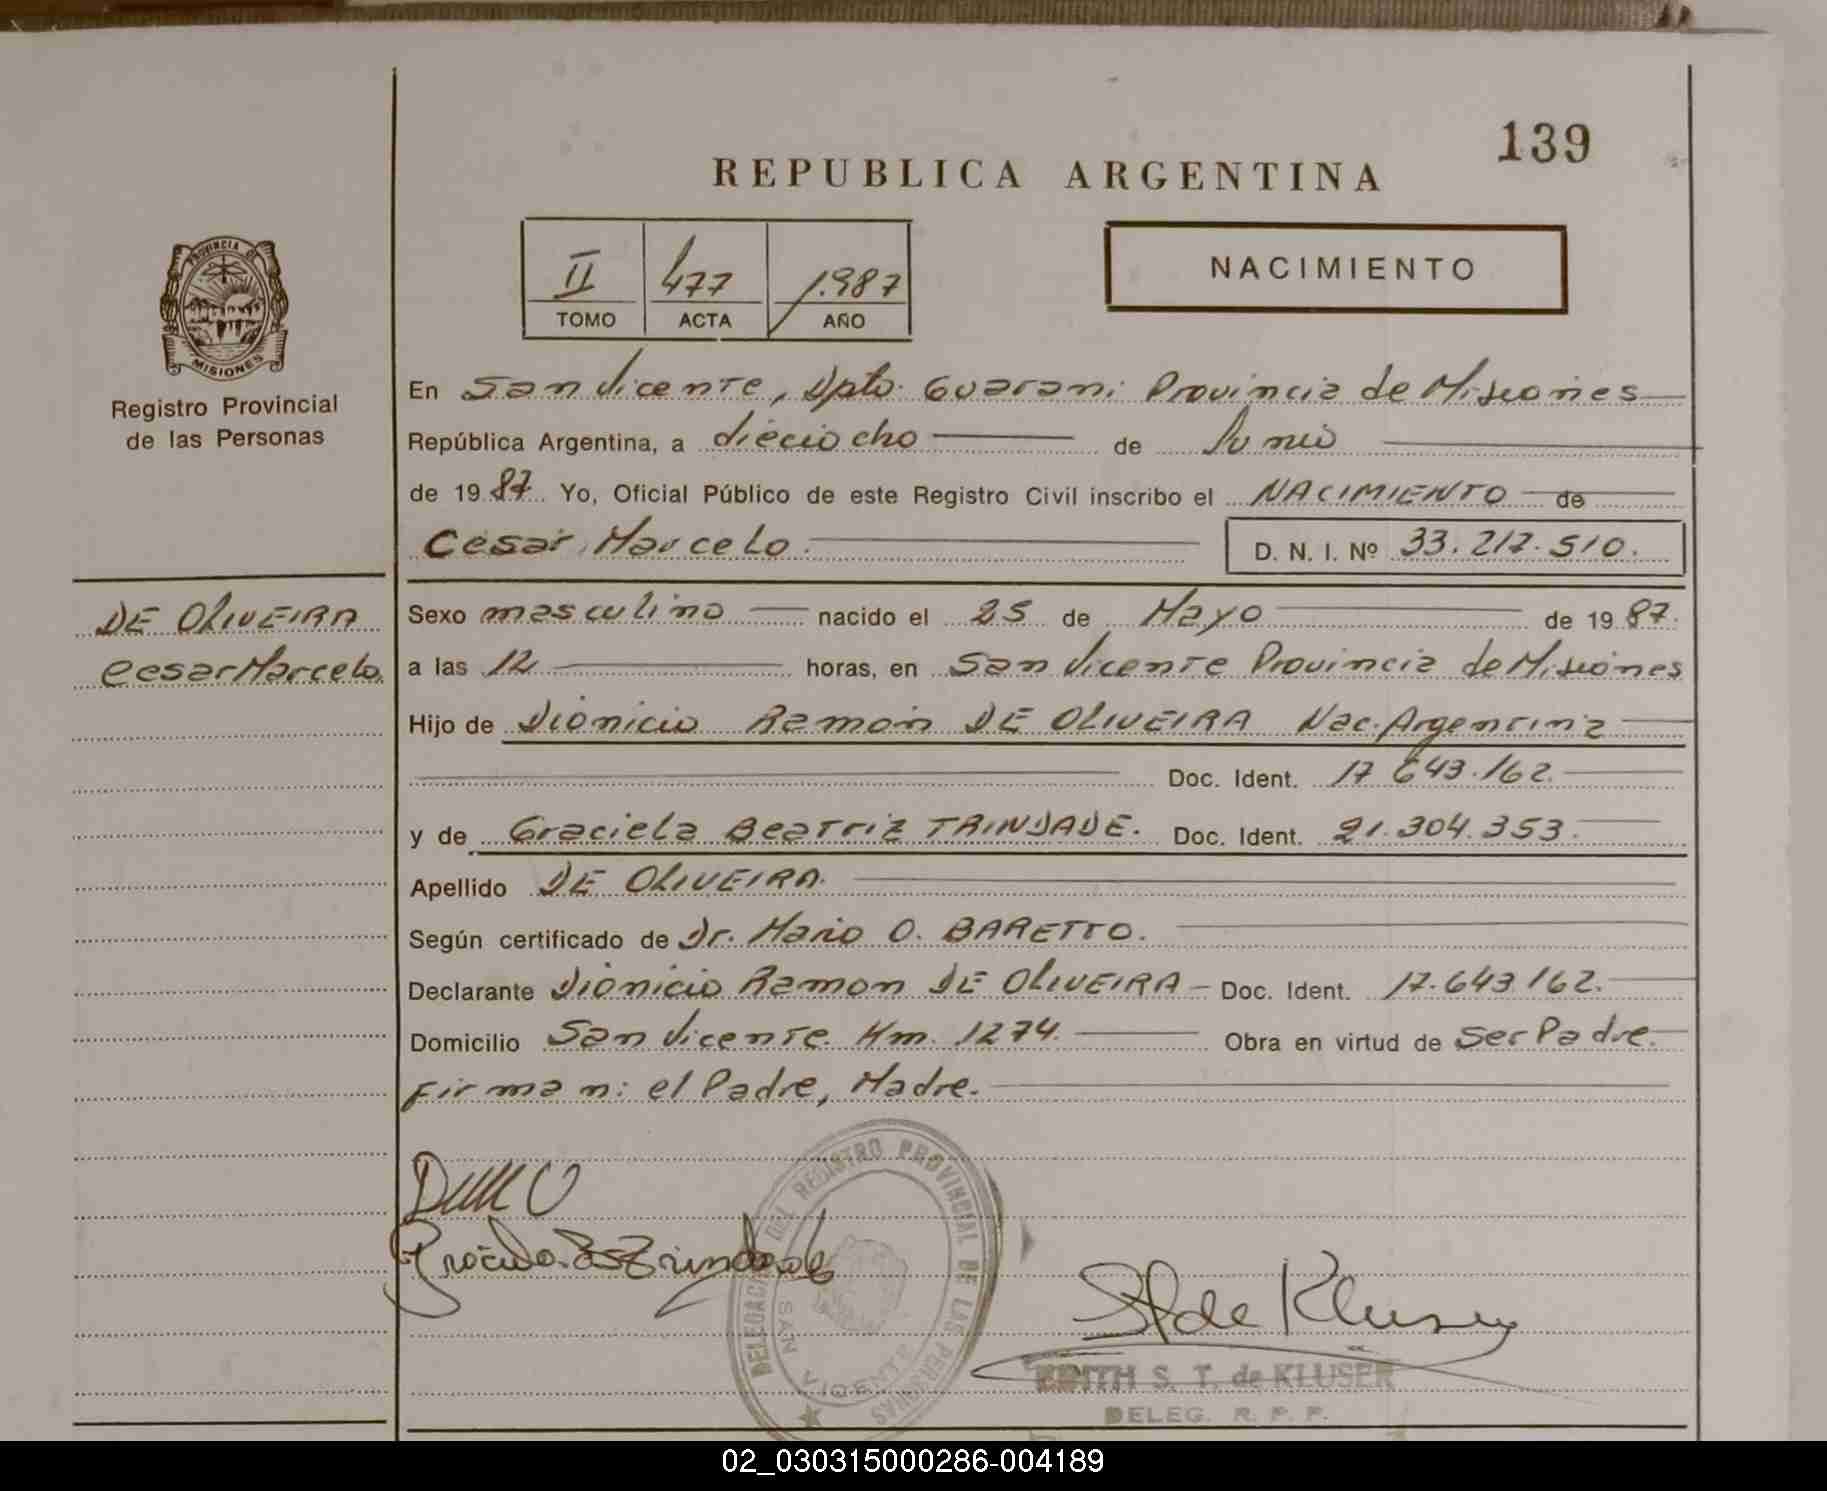 139
REPUBLICA ARGENTINA
PROVINCIA DE
MISIONES
Registro Provincial
de las Personas
II 477 1.987
TOMO ACTA AÑO
NACIMIENTO
En San Vicente, Dpto. Guarani Provincia de Misiones
República Argentina, a dieciocho de Junio
de 1987 Yo, Oficial Público de este Registro Civil inscribo el NACIMIENTO de
Cesar Marcelo. D. N. I. Nº 33.217.510.
DE OLIVEIRA
Cesar Marcelo.
Sexo masculino nacido el 25 de Mayo de 1987.
a las 12 horas, en San Vicente Provincia de Misiones
Hijo de Dionicio Ramon DE OLIVEIRA Nac. Argentina
Doc. Ident. 17.643.162.
y de Graciela Beatriz TRINDADE. Doc. Ident. 21.304.353.
Apellido DE OLIVEIRA.
Según certificado de Dr. Mario O. BARETTO.
Declarante Dionicio Ramon DE OLIVEIRA Doc. Ident. 17.643.162.
Domicilio San Vicente. Km. 1274. Obra en virtud de Ser Padre.
Firman: el Padre, Madre.
DELEGACION DEL REGISTRO PROVINCIAL DE LAS PERSONAS
SAN VICENTE
de Kluser
EDITH S. T. de KLUSER
DELEG. R. P. P.
02_030315000286-004189